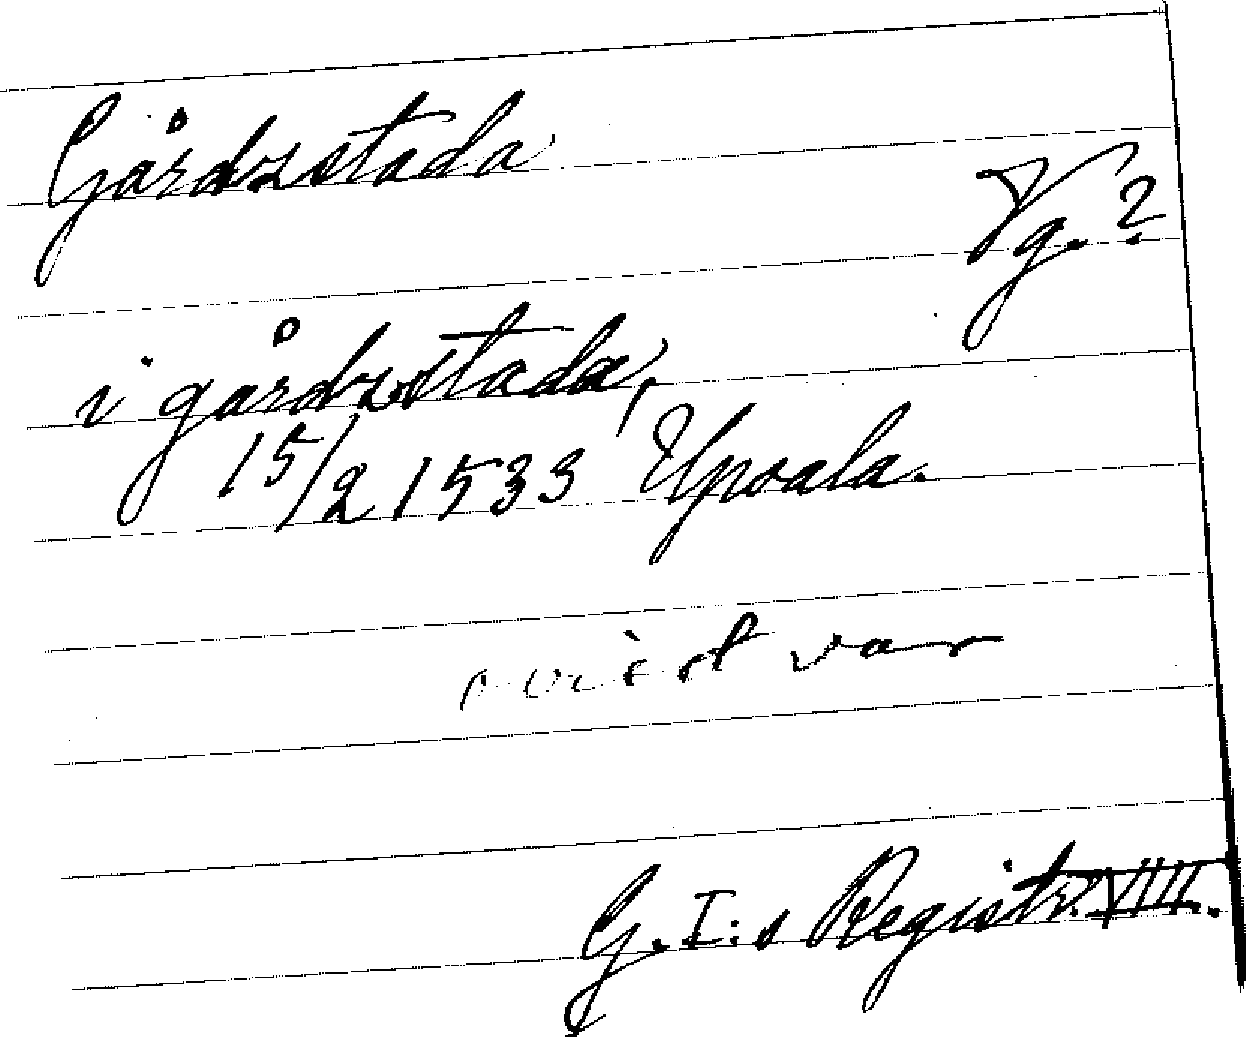 Gårdzstada
Vg. ?
i gårdzstada,
15/2 1533 Upsala.
ovisst var
G. I:s Registr. VIII.